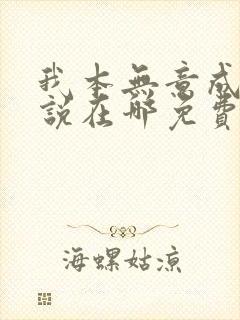 我本無意成
說在哪免費
海螺姑涼